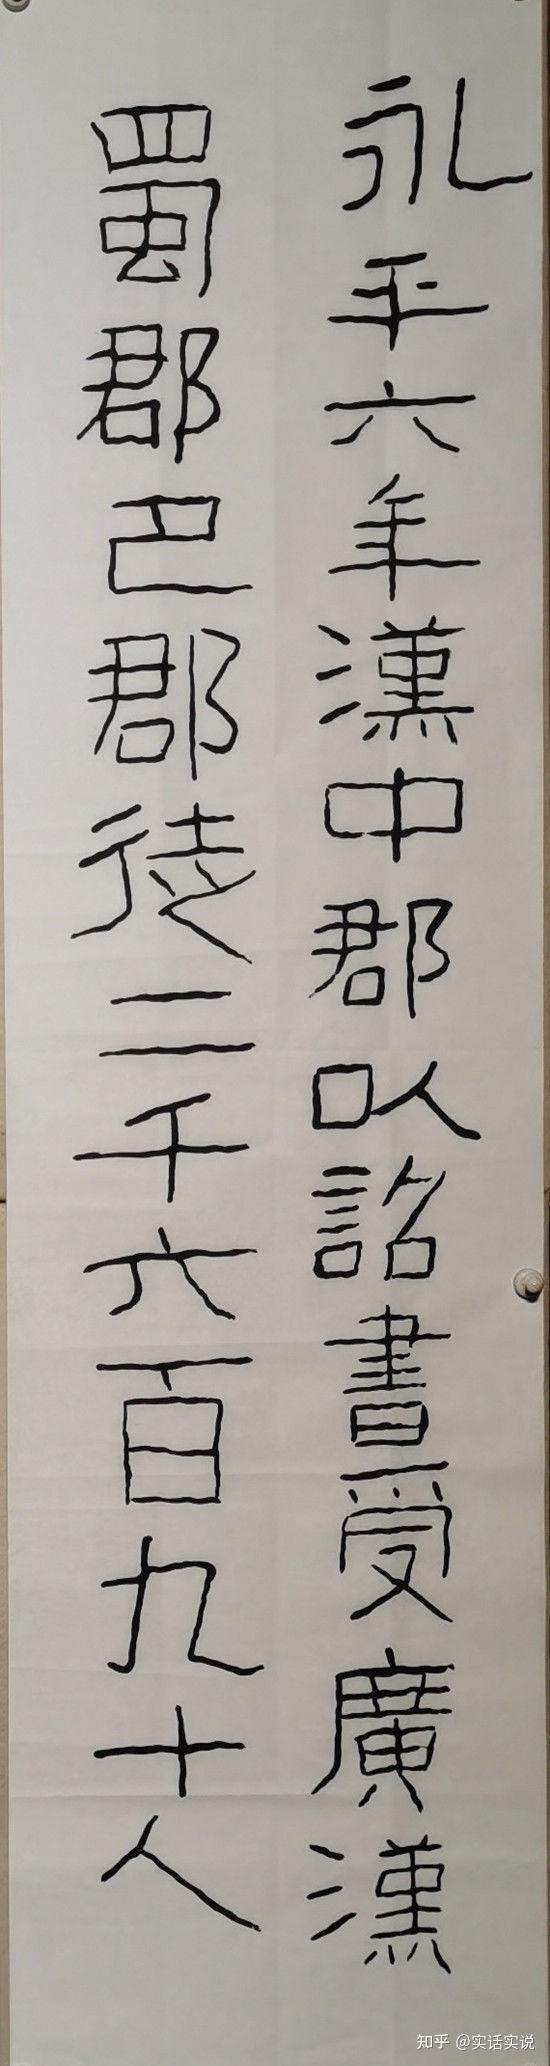 永平六年漢中郡以詔書受廣漢
蜀郡巴郡徒二千六百九十人
知乎 @实话实说